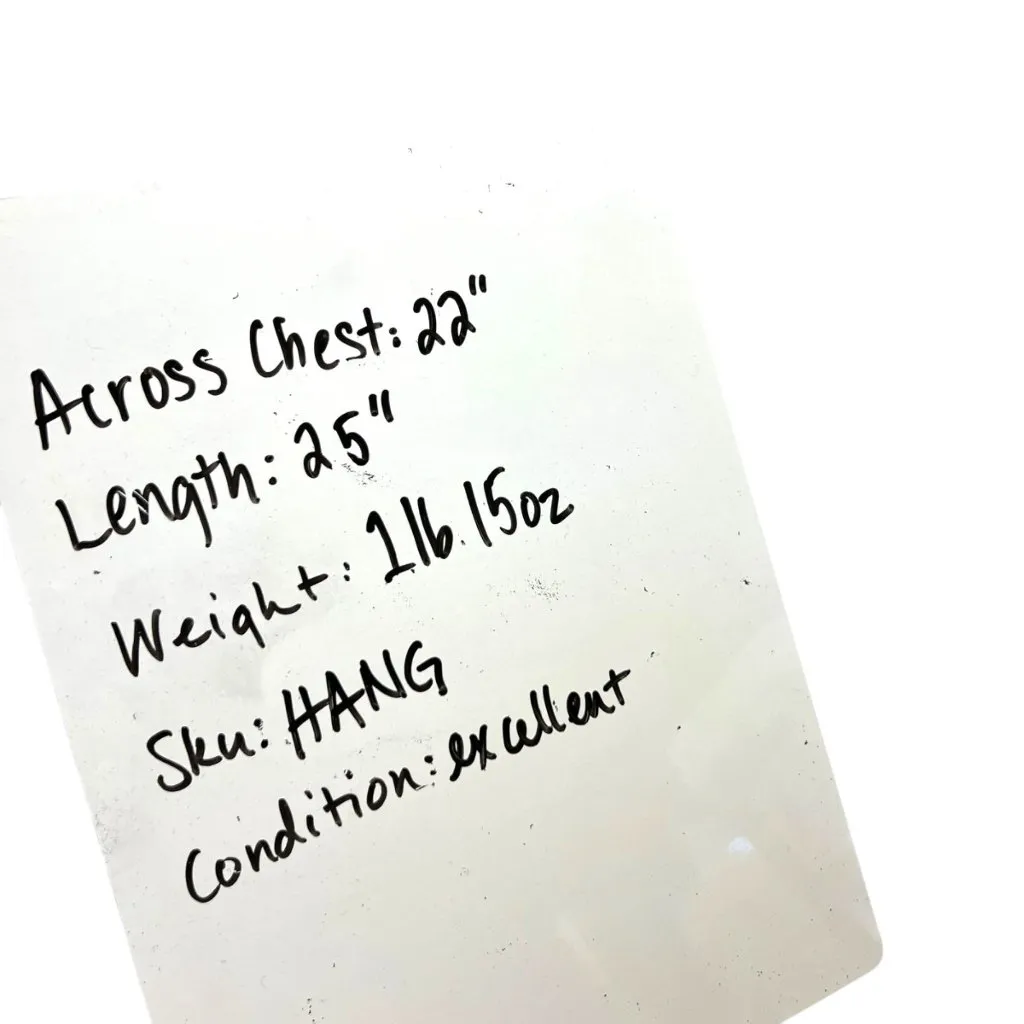 Across Chest: 22"
Length: 25"
Weight: 1lb. 15oz
Sku: HANG
Condition: excellent